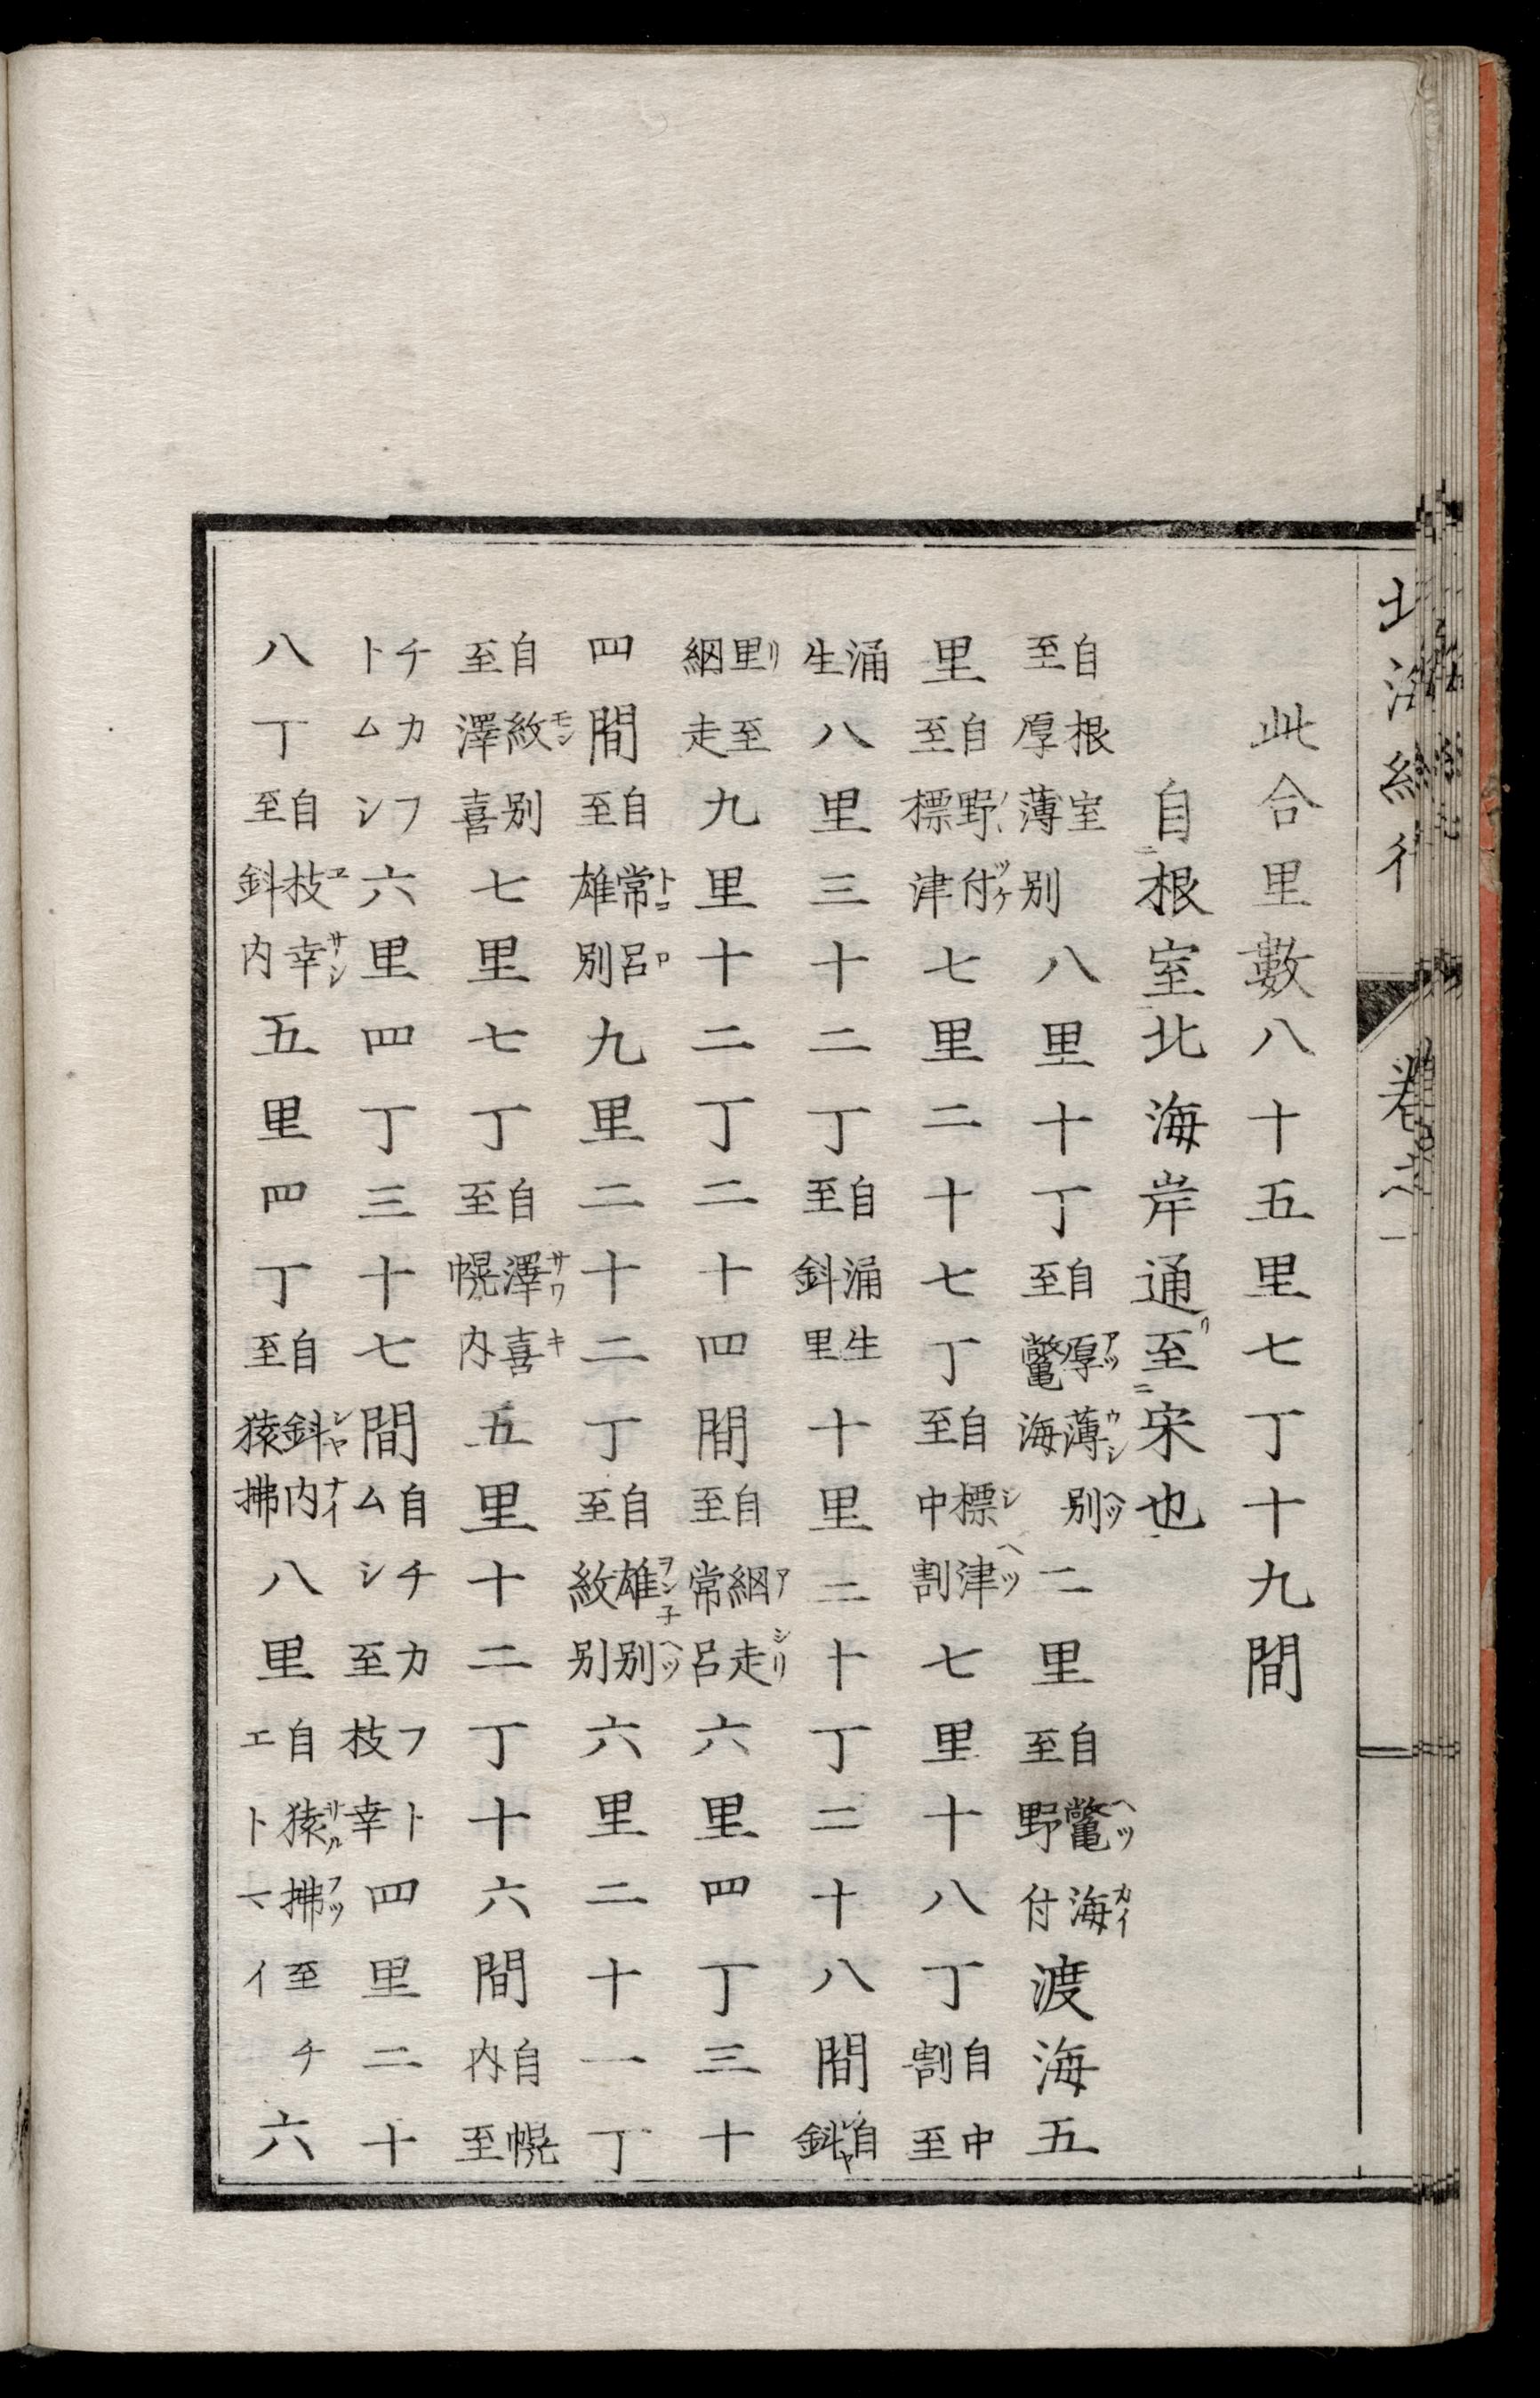 北海紀行 卷之一
此合里數八十五里七丁十九間
自根室北海岸通至宋也
自根室至厚薄別八里十丁自厚薄別至鼈海二里自鼈海至野付渡海五
里自野付至標津七里二十七丁自標津至中割七里十八丁自中割至
涌生八里三十二丁自涌生至斜里十里二十丁二十八間自斜
里至網走九里十二丁二十四間自網走至常呂六里四丁三十
四間自常呂至雄別九里二十二丁自雄別至紋別六里二十一丁
自紋別至澤喜七里七丁自澤喜至幌内五里十二丁十六間自幌内至
チカフトムシ六里四丁三十七間自チカフトムシ至枝幸四里二十
八丁自枝幸至斜内五里四丁自斜内至猿拂八里自猿拂至チエトマイ六